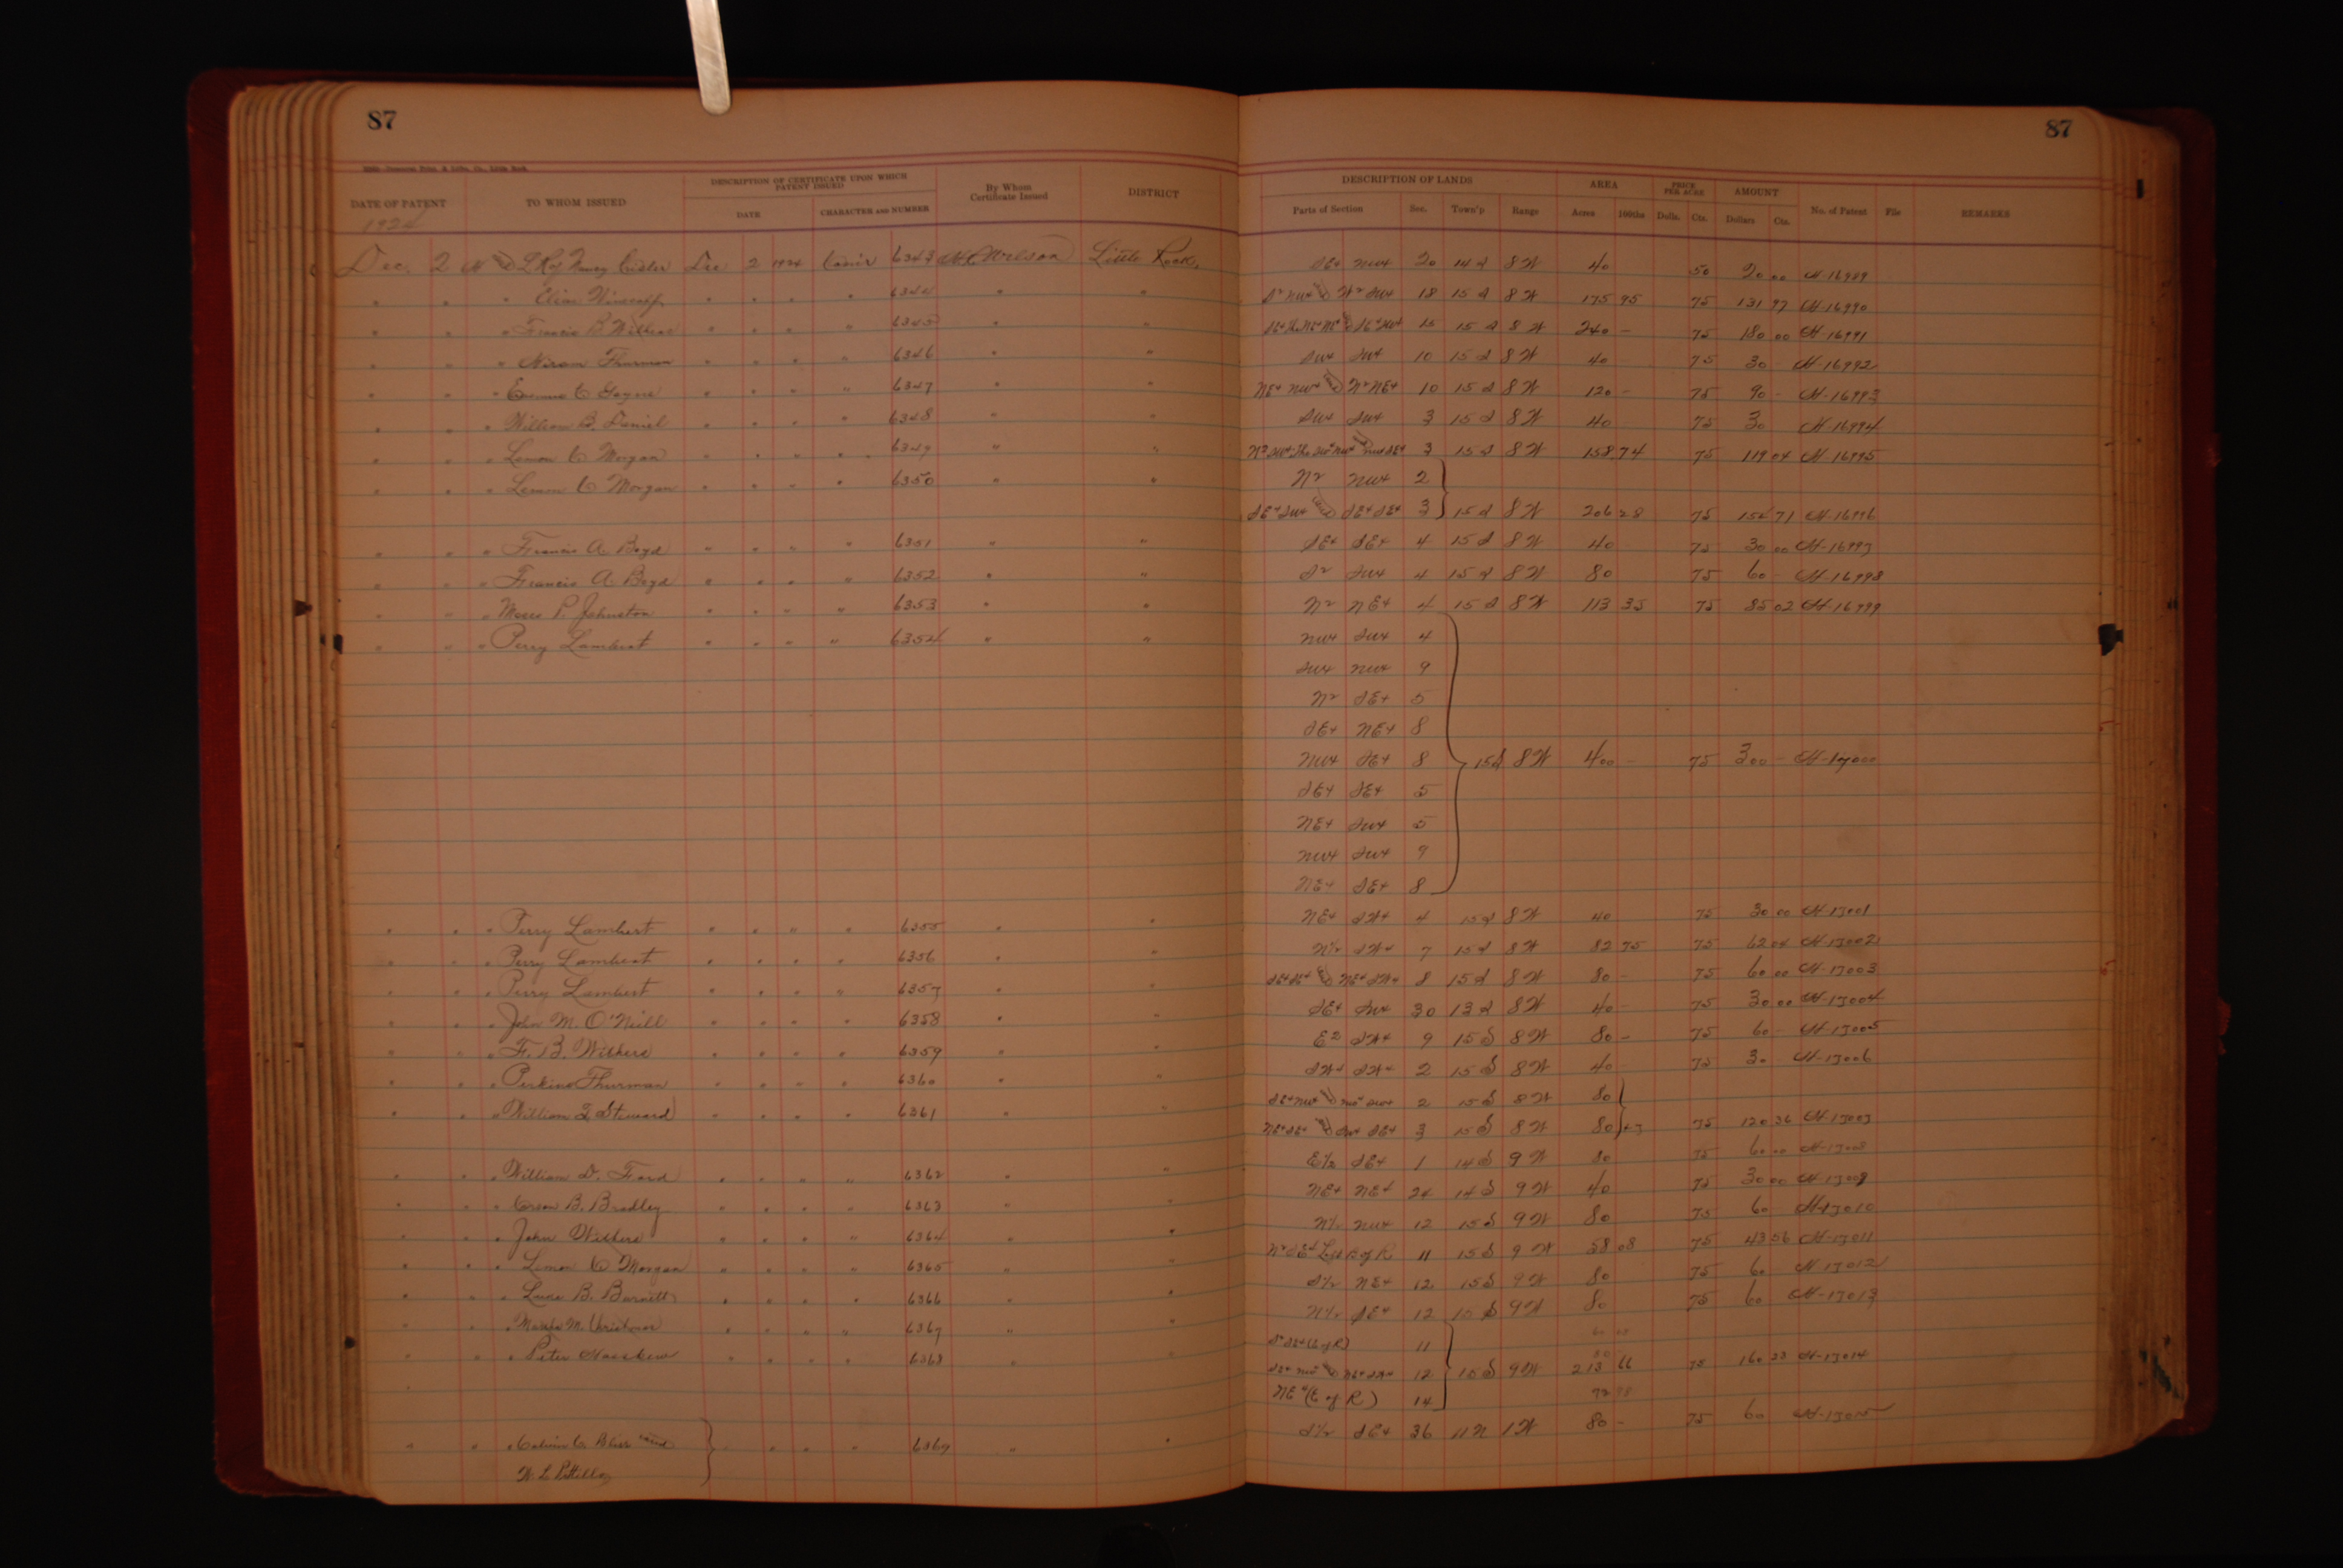 87
87
DATE OF PATENT TO WHOM ISSUED DESCRIPTION OF CERTIFICATE UPON WHICH PATENT ISSUED By Whom Certificate Issued DISTRICT
DATE CHARACTER AND NUMBER
DESCRIPTION OF LANDS AREA PRICE PER ACRE AMOUNT No. of Patent File REMARKS
Parts of Section Sec. Town'p Range Acres 100ths Dolls. Cts. Dollars Cts.
1924
Dec. 2 Dec 2 1924 6343 Little Rock, SE4 NW4 20 14 S 8 W 40 50 20 00 H-16989
" " " " " " " 6344 " " 18 15 S 8 W 175 95 75 131 97 H-16990
" " " Francis B. " " " " 6345 " " 15 15 S 8 W 240 - 75 180 00 H-16991
" " " Hiram Thurman " " " " 6346 " " SW4 SW4 10 15 S 8 W 40 75 30 H-16992
" " " " " " " 6347 " " NE4 NW4 and N2 NE4 10 15 S 8 W 120 - 75 90 - H-16993
" " " William B. Daniel " " " " 6348 " " SW4 SW4 3 15 S 8 W 40 75 30 H-16994
" " " Lemon C Morgan " " " " 6349 " " 3 15 S 8 W 158.74 75 119 04 H-16995
" " " Lemon C Morgan " " " " 6350 " " N2 NW4 2
SE4 SW4 and SE4 SE4 3 15 S 8 W 206 28 75 154 71 H-16996
" " " Francis A. Boyd " " " " 6351 " " SE4 SE4 4 15 S 8 W 40 75 30 00 H-16997
" " " Francis A. Boyd " " " " 6352 " " S2 SW4 4 15 S 8 W 80 75 60 - H-16998
" " " Moses P. Johnston " " " " 6353 " " N2 NE4 4 15 S 8 W 113 35 75 85 02 H-16999
" " " Perry Lambert " " " " 6354 " " NW4 SW4 4
SW4 NW4 9
N2 SE4 5
SE4 NE4 8
NW4 SE4 8 15 S 8 W 400 - 75 300 - H-17000
SE4 SE4 5
NE4 SW4 5
NW4 SW4 9
NE4 SE4 8
" " " Perry Lambert " " " " 6355 " " NE4 SW4 4 15 S 8 W 40 75 30 00 H-17001
" " " Perry Lambert " " " " 6356 " " N½ SW4 7 15 S 8 W 82 75 75 62 04 H-17002
" " " Perry Lambert " " " " 6357 " " SE4 SE4 and NE4 SW4 8 15 S 8 W 80 - 75 60 00 H-17003
" " " John M. O'Neill " " " " 6358 " " SE4 SW4 30 13 S 8 W 40 - 75 30 00 H-17004
" " " F. B. Withers " " " " 6359 " " E2 SW4 9 15 S 8 W 80 - 75 60 - H-17005
" " " Perkins Thurman " " " " 6360 " " SW4 SW4 2 15 S 8 W 40 75 30 H-17006
" " " William F. Steward " " " " 6361 " " 2 15 S 8 W 80
NE4 SE4 and SW4 SE4 3 15 S 8 W 80 75 120 36 H-17007
" " " William D. Ford " " " " 6362 " " E½ SE4 1 14 S 9 W 80 75 60 00 H-17008
" " " B. Bradley " " " " 6363 " " NE4 NE4 24 14 S 9 W 40 75 30 00 H-17009
" " " John Withers " " " " 6364 " " N½ NW4 12 15 S 9 W 80 75 60 H-17010
" " " Lemon C Morgan " " " " 6365 " " 11 15 S 9 W 58 08 75 43 56 H-17011
" " " B. Barnett " " " " 6366 " " S½ NE4 12 15 S 9 W 80 75 60 H-17012
" " " Martha M. " " " " 6367 " " N½ SE4 12 15 S 9 W 80 75 60 H-17013
" " " Peter " " " " 6368 " " 11
12 15 S 9 W 213 66 75 160 23 H-17014
NE4 (E of R) 14
" " " and " " " " 6369 " " S½ SE4 36 11 N 1 W 80 - 75 60 H-17015
W. L. Pittillo